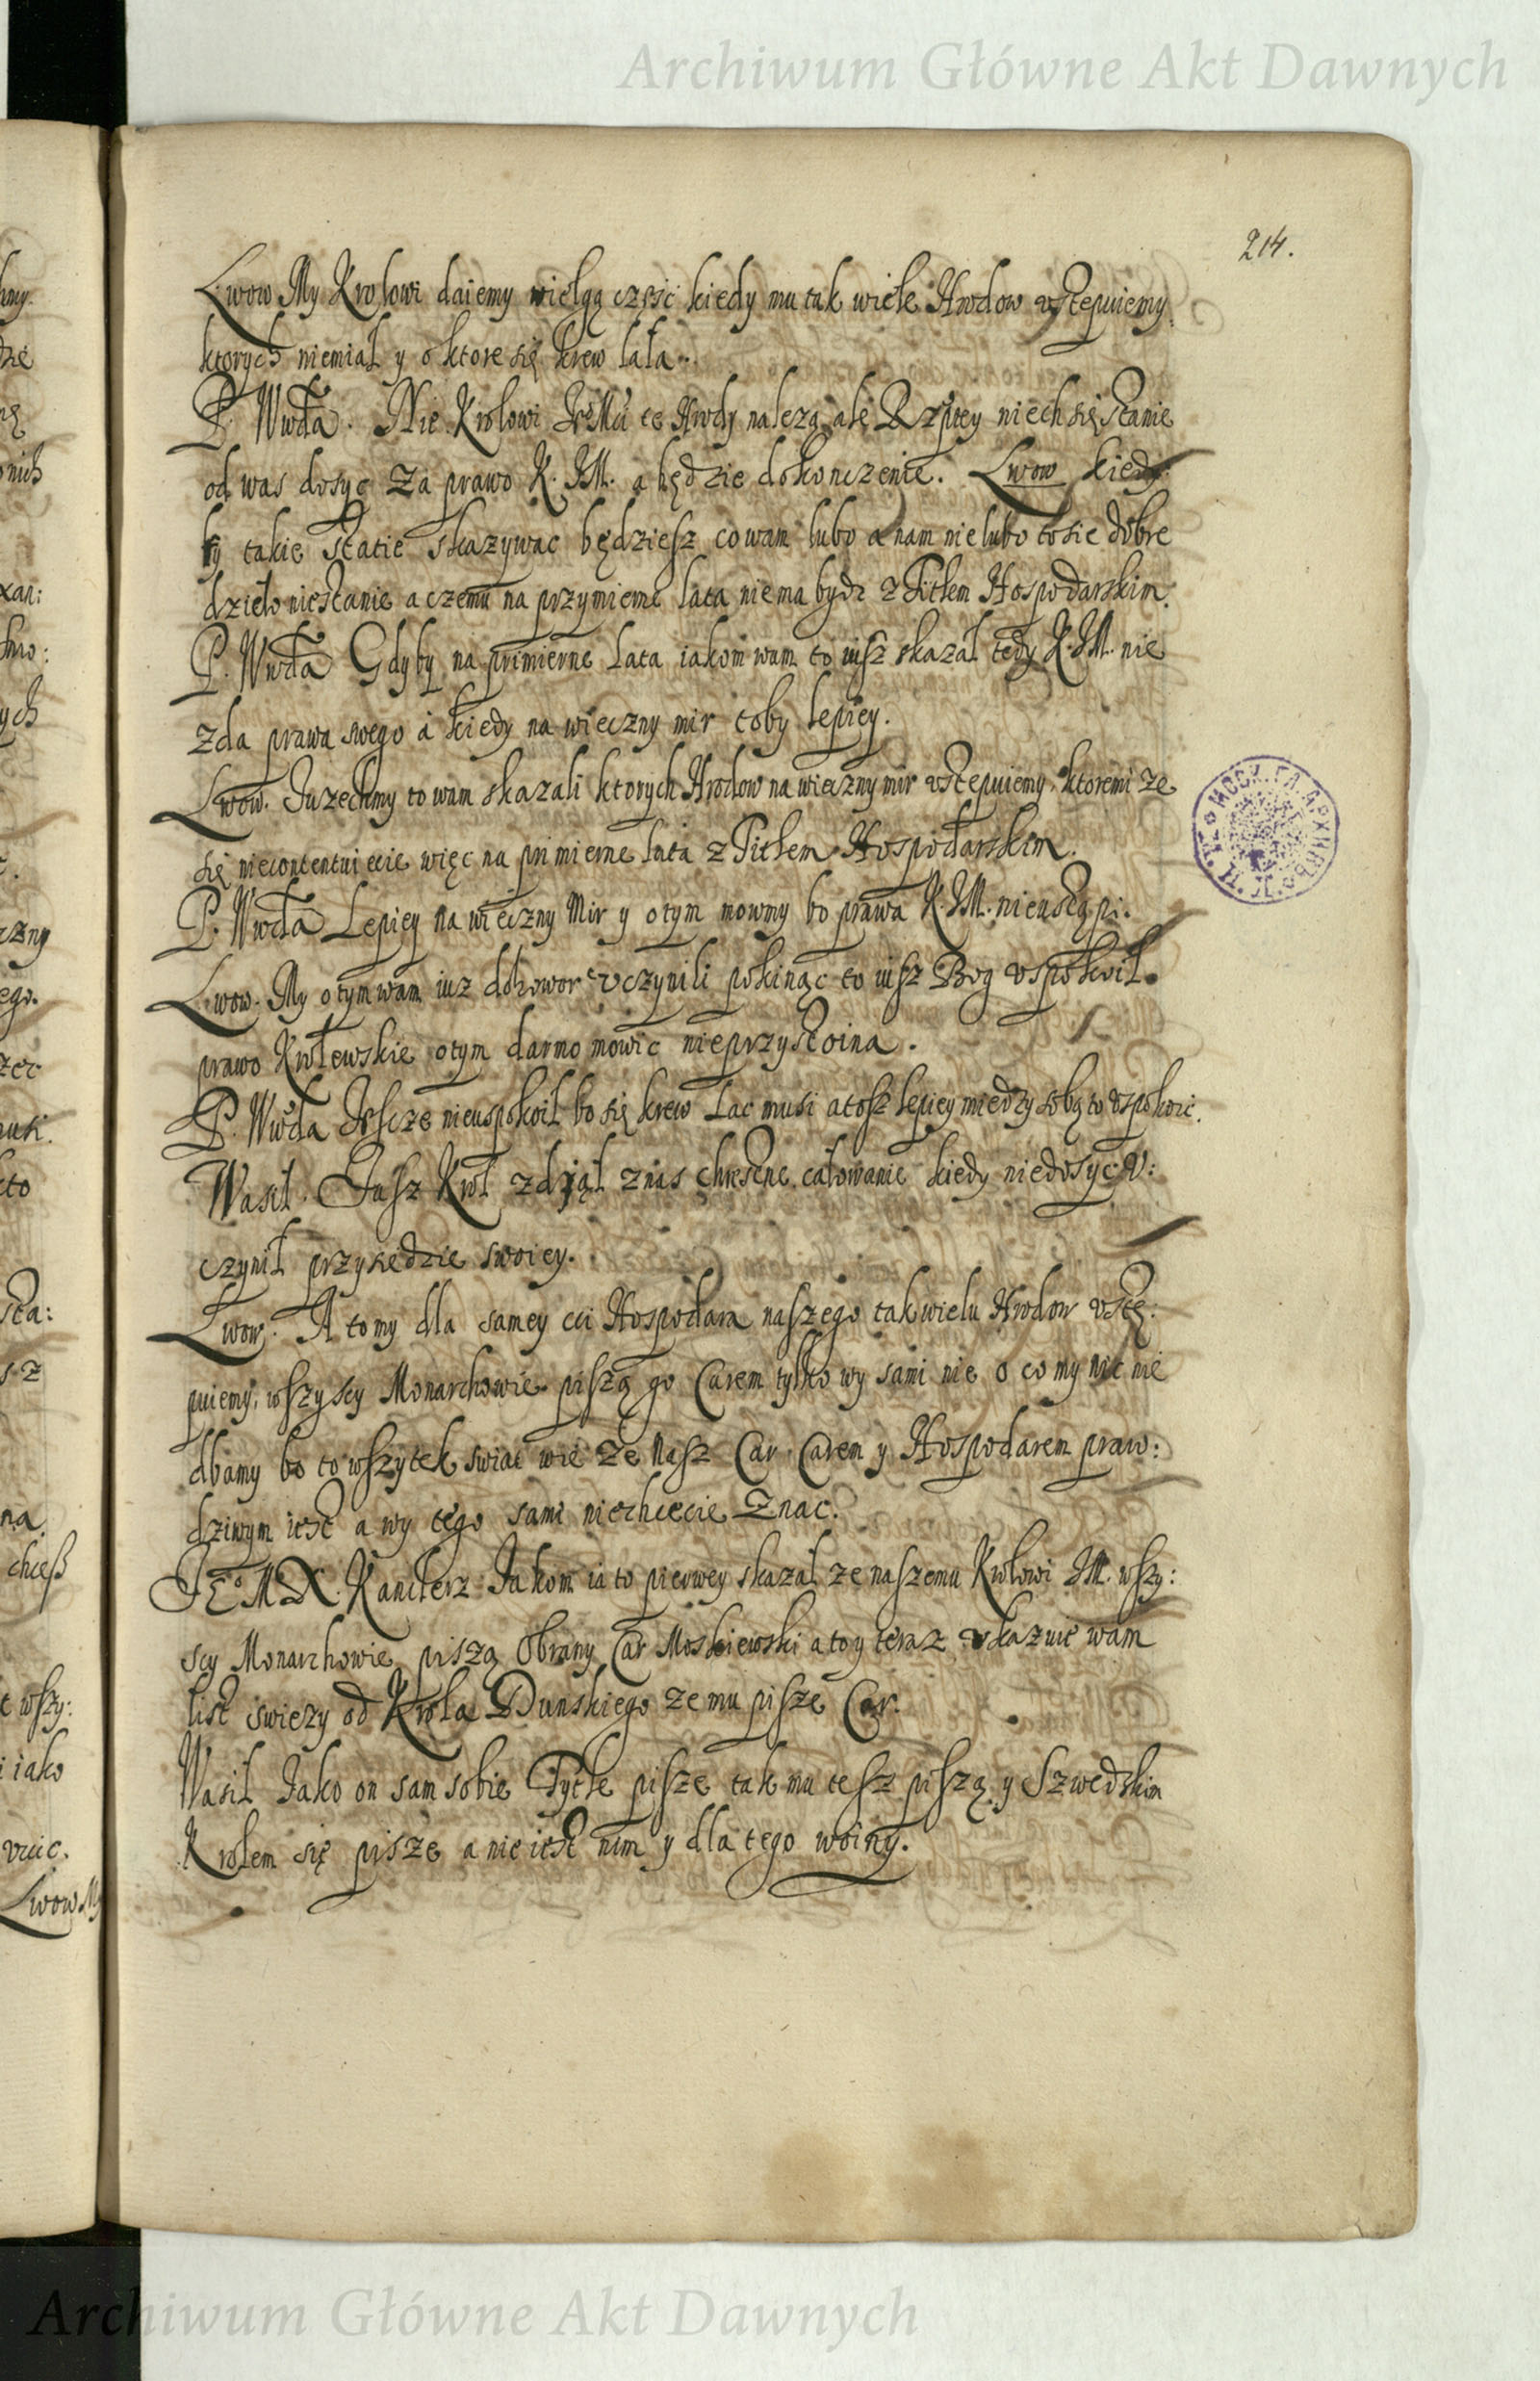 Archiwum Główne Akt Dawnych
214.
Lwow My Krolowi daiemy wielgą część kiedy mu tak wiele Hrodow vstępuiemy
ktorych niemiał y o ktore się krew lała.
P. Wwda. Nie Krolowi JeMci te Hrody należą ale Rzptey niech się stanie
od was dosyc za prawo K. JM. a będzie dokonczenie. Lwow kiedy:
by takie statie skazywac będziesz co wam lubo a nam nie lubo to sie dobre
dzieło niestanie a czemu na przymierne lata niema bydz z Titłem Hospodarskim.
P. Wwda Gdyby na primierne lata iakom wam to iusz skazał tedy K. JM. nie
zda prawa swego á kiedy na wieczny mir toby lepiey.
Lwow. Juzechmy to wam skazali ktorych Hrodow na wieczny mir vstępuiemy, ktoremi ze
się niecontentuiecie więc na primierne lata z Titłem Hospodarskim.
P. Wwda Lepiey na wieczny Mir y otym mowmy bo prawa K. JM. nieustąpi.
Lwow. My otym wam iuz dohowor vczynili pokinąc to iusz Bog vspokoił
prawo Krolewskie otym darmo mowic nieprzystoina.
P. Wwda Jescze nieuspokoił bo się krew lac musi a tosz lepiey miedzy sobą to vspokoic.
Wasil. Jusz Krol zdjął z nas chrestne całowanie kiedy niedosyc v:
czynił przysiedzie swoiey.
Lwow. A to my dla samey cci Hospodara naszego tak wielu Hrodow vstę:
puiemy, wszyscy Monarchowie piszą go Carem tylko wy sami nie o co my nic nie
dbamy bo to wszytek swiat wie ze Nasz Car Carem y Hospodarem praw:
dziwym iest a wy tego sami niechcecie znac.
JEo M X. Kanclerz Jakom ia to pierwey skazał ze naszemu Krolowi JM. wszy:
scy Monarchowie piszą Obrany Car Moskiewski a to y teraz vkazuie wam
list swiezy od Krola Dunskiego ze mu pisze Car.
Wasil Jako on sam sobie Tytłe pisze tak mu tesz piszą y Szwedskim
Krolem się pisze a nie iest nim y dla tego woiny.
Archiwum Główne Akt Dawnych